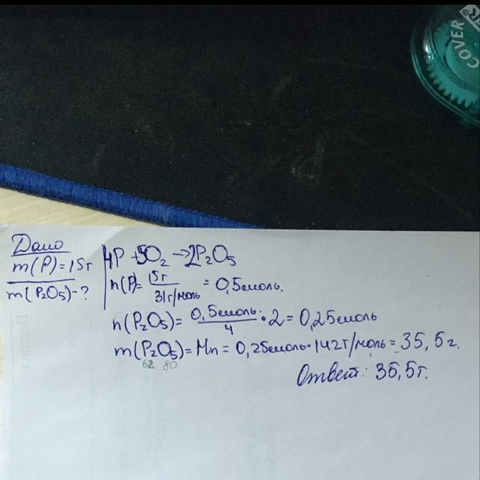 COVER
Дано
m(P)=15г
m(P₂O₅)-?
4P+5O₂→2P₂O₅
n(P)=15г/31г/моль=0,5моль.
n(P₂O₅)=0,5моль/4•2=0,25моль
m(P₂O₅)=Mn=0,25моль•142г/моль=35,5г.
62 80
Ответ: 35,5г.